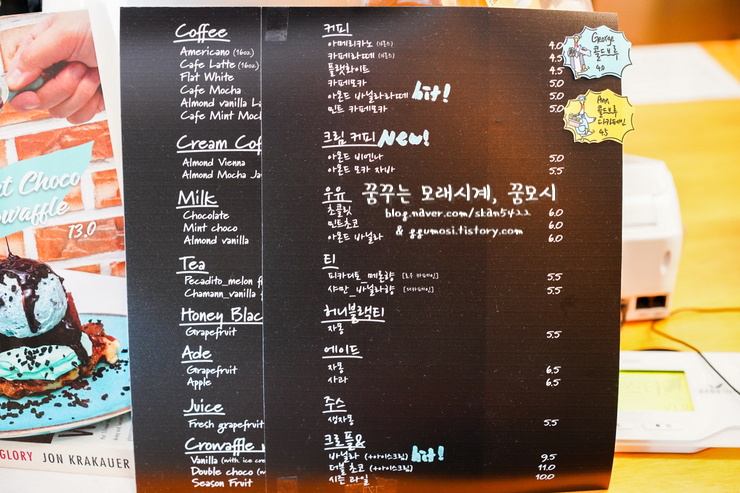 Coffee
Americano (16oz.)
Cafe Latte (16oz.)
Flat White
Cafe Mocha
Almond vanilla La
Cafe Mint Moc
Cream Cof
Almond Vienna
Almond Mocha Ja
Milk
Chocolate
Mint choco
Almond vanilla
Tea
Pecadito_melon f
Chamann_vanilla
Honey Blac
Grapefruit
Ade
Grapefruit
Apple
Juice
Fresh grapefruit
Crowaffle
Vanilla (with ice cre
Double choco (w
Season Fruit
커피
아메리카노 4.0
카페라떼 4.5
플랫화이트 4.5
카페모카 5.0
아몬드 바닐라라떼 hit! 5.0
민트 카페모카 5.0
크림 커피 New!
아몬드 비엔나 5.0
아몬드 모카 자바 5.5
우유
초콜릿 6.0
민트초코 6.0
아몬드 바닐라 6.0
티
피카디토_메론향 5.5
샤만_바닐라향 5.5
허니블랙티
자몽 5.5
에이드
자몽 6.5
사과 6.5
주스
생자몽 5.5
크로플&
바닐라 (+아이스크림) hit! 9.5
더블 초코 (+아이스크림) 11.0
시즌 과일 10.0
George
콜드브루
4.0
Ann
콜드브루
디카페인
4.5
꿈꾸는 모래시계, 꿈모시
blog.naver.com/skan5422
& ggumosi.tistory.com
t Choco
owaffle
13.0
GLORY JON KRAKAUER